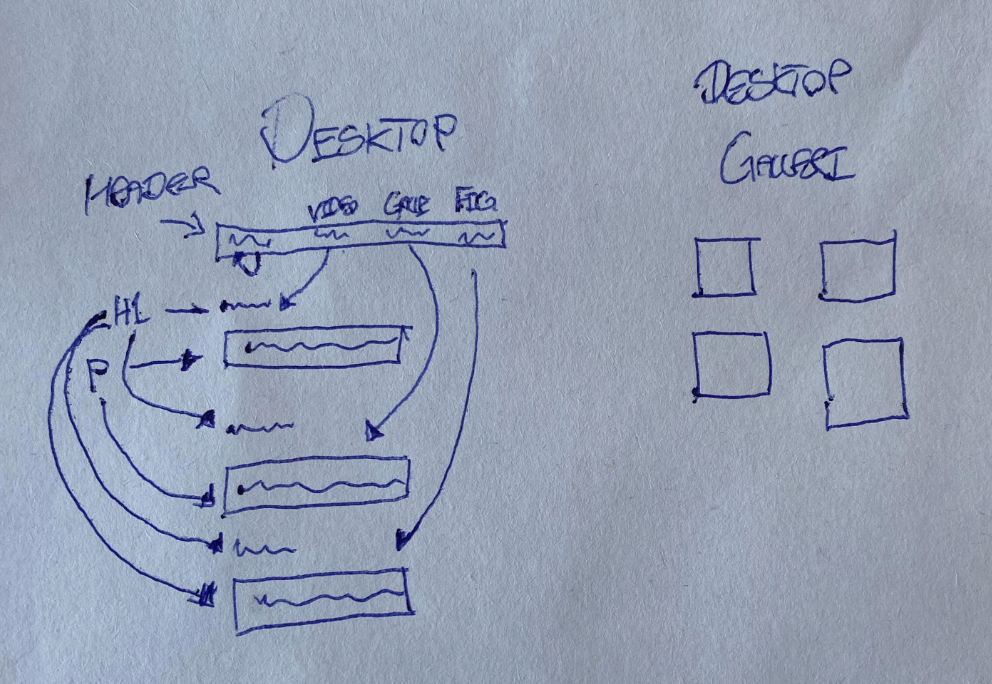 DESKTOP
HEADER
VIDEO GALLE FIG
H1
P
DESKTOP
GALLERI